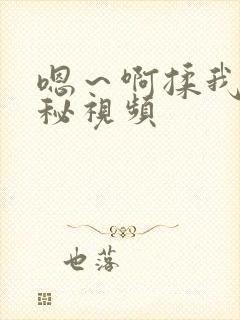 嗯～啊揉我
秘視頻
也落